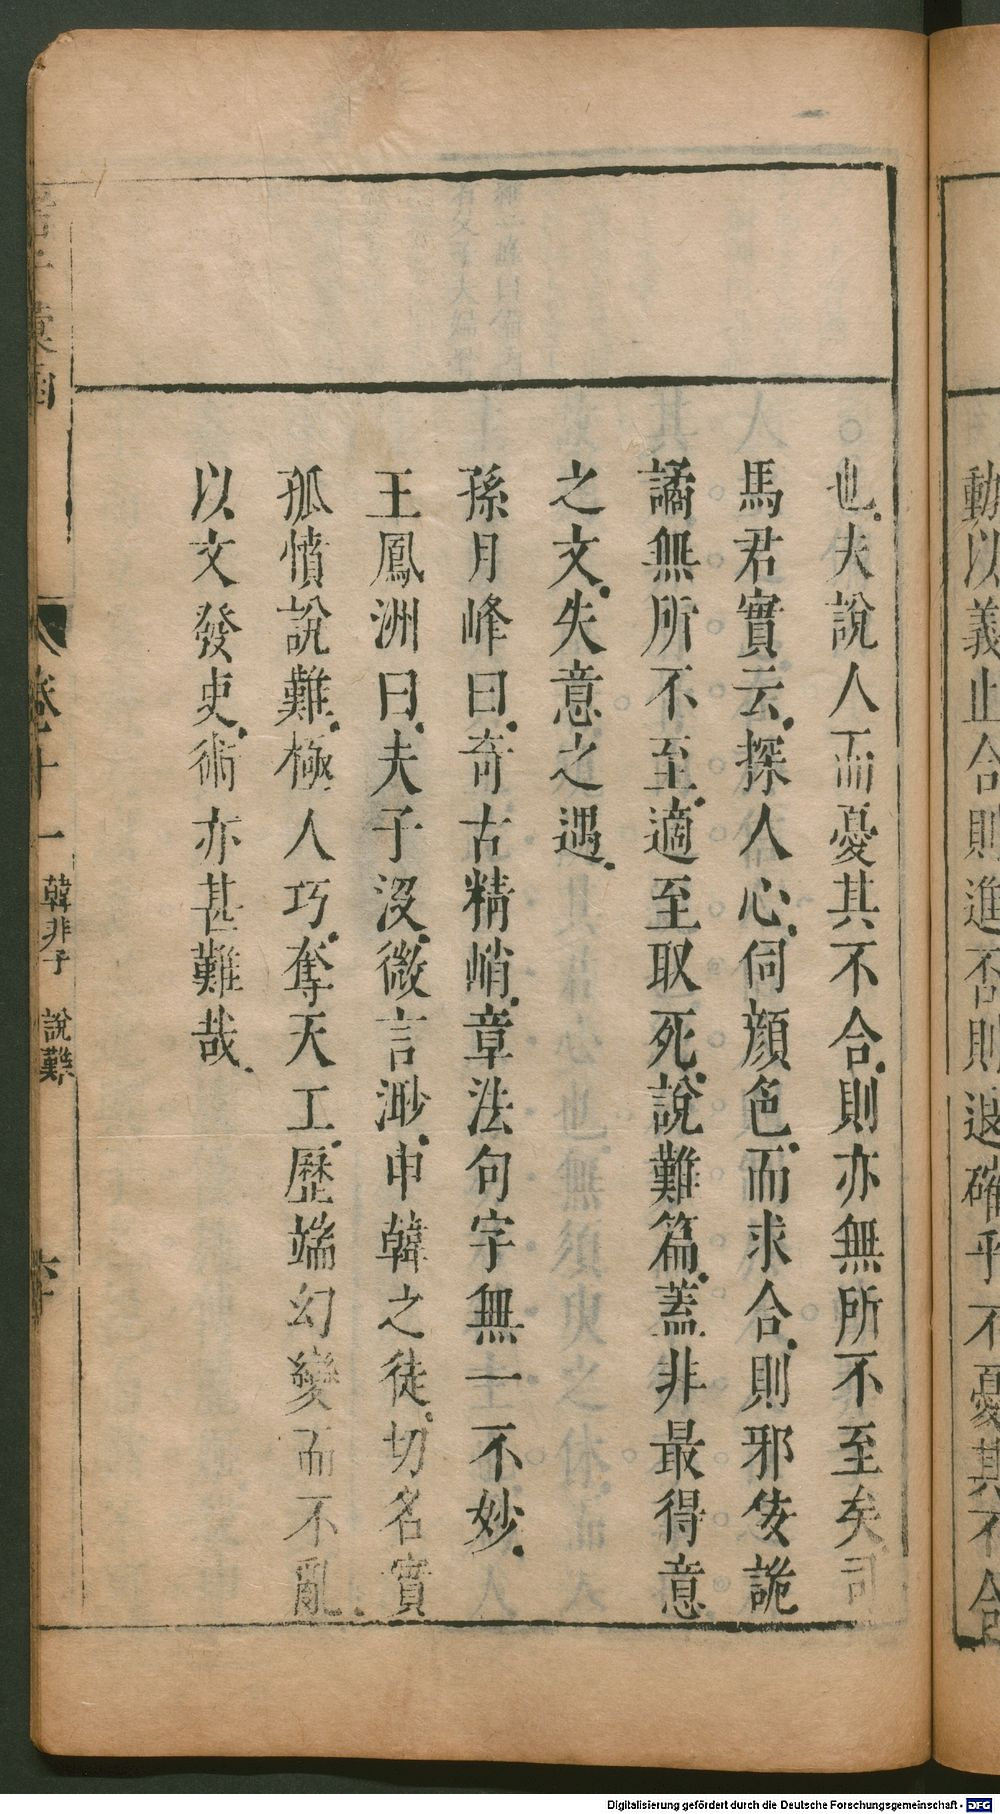 動以義止合則進否則退確乎不憂其不合
也夫說人而憂其不合則亦無所不至矣司
馬君實云探人心伺顔色而求合則邪佞詭
譎無所不至適至取死說難篇蓋非最得意
之文失意之遇
孫月峰曰奇古精峭章法句字無一不妙
王鳳洲曰夫子沒微言渺申韓之徒切名實
孤憤說難極人巧奪天工歷端幻變而不亂
以文發史術亦甚難哉
卷十一 韓非子 說難
Digitalisierung gefördert durch die Deutsche Forschungsgemeinschaft - DFG